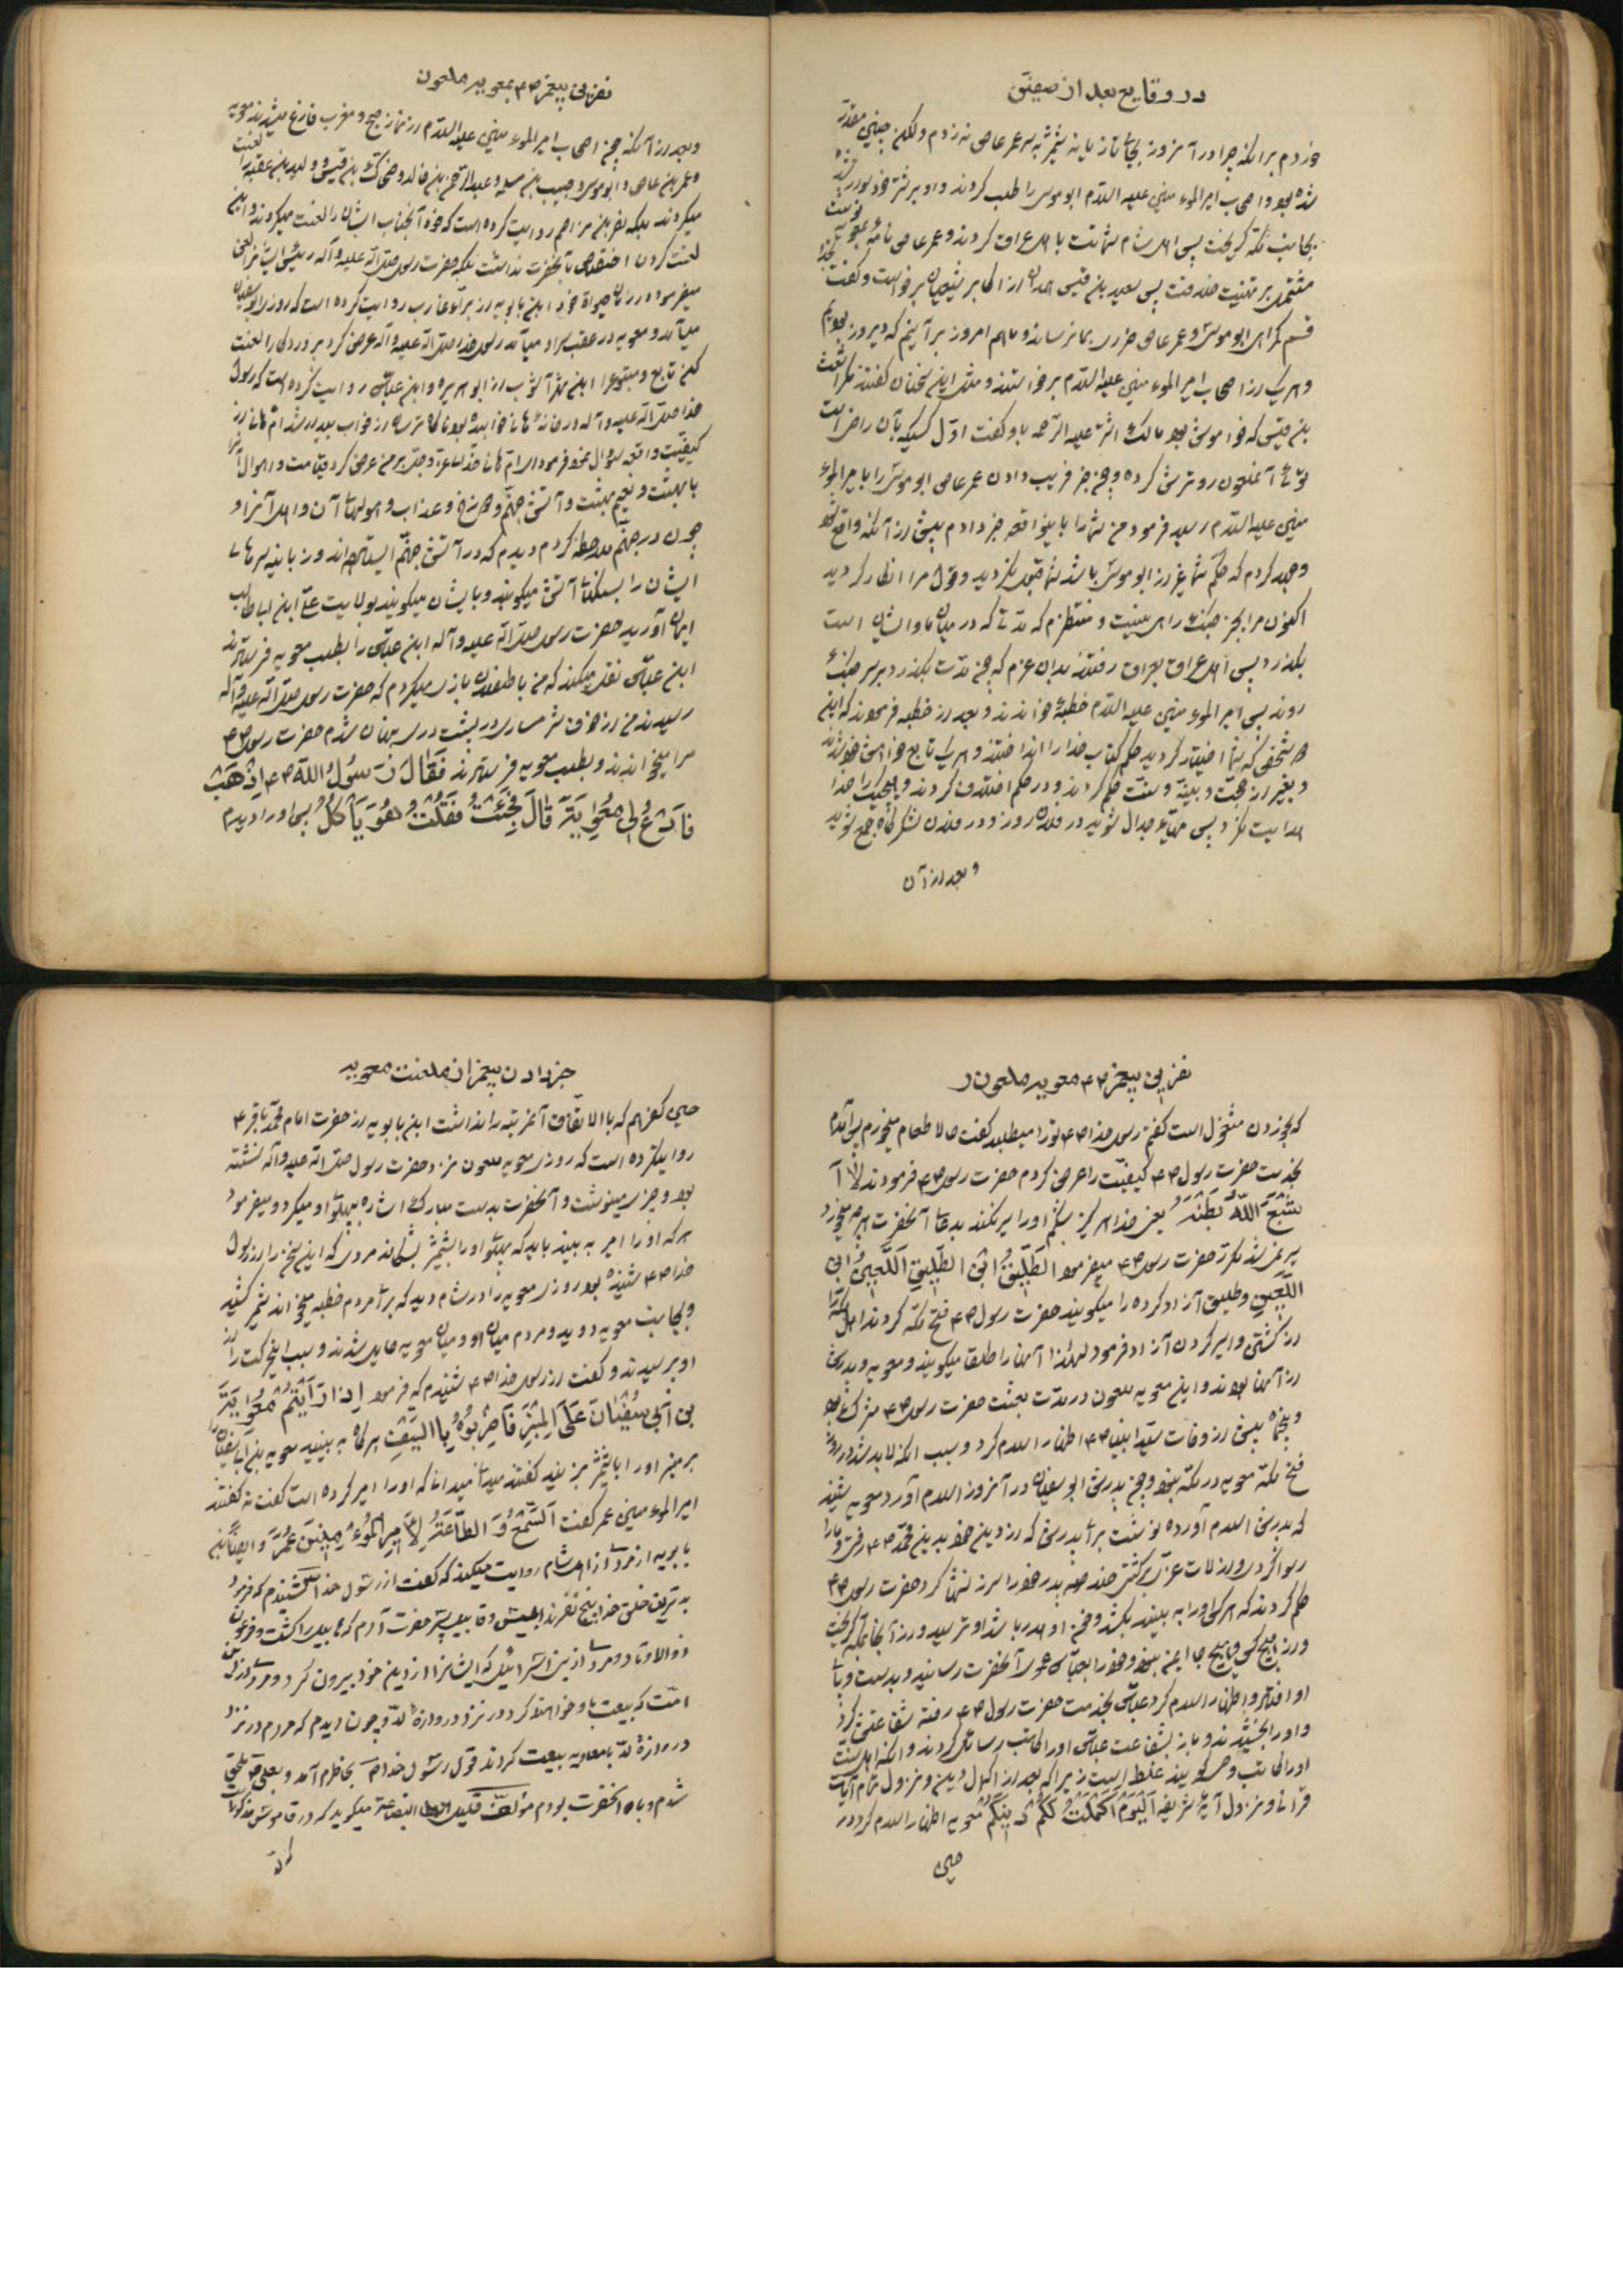 در وقایع بعد از صفین
خوردم برانکه چرا در آنروز بجای تازیانه شمشیر بر سر عمر عاص نه زدم ولکن چنین مقدر
شده بود و اصحاب امیر المومنین علیه السلام ابوموسی را طلب کردند و او بر شتر خود سوار شده
بجانب مکه گریخت پس اهل شام شماتت با اهل عراق کردند و عمر عاص نامه بمعویه نوشت
مشتمل بر تهنیت خلافت پس سعید بن قیس همدان از اکابر شیعیان برخواست و گفت بخدا
قسم گمراهی ابوموسی و عمر عاص ضرری بما نرساند و ما هم امروز بر آنیم که دیروز بودیم
و هر یک از اصحاب امیر المومنین علیه السلام برخواستند و مثل این سخنان گفتند مگر اشعث
بن قیس که خواموش بود مالک اشتر علیه الرحمه باو گفت اول کسیکه بآن راضی است
توئی آنملعون رو ترش کرده و چون خبر فریب دادن عمر عاص ابوموسی را بامیر المومنین
علیه السلام رسید فرمود من شما را باینواقعه خبر دادم پیش از آنکه واقع شود
و جهد کردم که حکم شما غیر از ابوموسی باشد شما قبول نکردید و قول مرا انکار کردید
اکنون مرا بجز جنک رای نیست و منتظرم که مدتی که در میان ما و ایشان است
بگذرد پس اهل عراق بعراق رفتند بدان عزم که چون مدت بگذرد بر سر جنک
روند پس امیر المومنین علیه السلام خطبه خواندند و بعد از خطبه فرمودند که این
دو شخصی که شما اختیار کردید حکم کتاب خدا را انداختند و هر یک تابع خواهش خود شدند
و بغیر از حجت و بینه و سنت حکم کردند و در حکم اختلاف کردند و هیچیک را خدا
هدایت نکرد پس مهیای جدال شوید در فلان روز و در فلان لشکرگاه جمع شوید
و بعد از آن
نفرین پیغمبر ص بمعویه ملعون
و بعد از آنکه چون اصحاب امیر المومنین علیه السلام از نماز صبح و مغرب فارغ میشدند معویه
و عمر بن عاص و ابوموسی و حبیب بن مسلمه و عبد الرحمن بن خالد و ضحاک بن قیس و ولید بن عقبه را لعنت
میکردند بلکه نصر بن مزاحم روایت کرده است که خود آنجناب ایشان را لعنت میکردند و این
لعنت کردن اختصاص بآنحضرت نداشت بلکه حضرت رسول صلی الله علیه و آله رئیس ایشانرا لعن
میفرمود در زمان حیوة خود ابن بابویه از براء عازب روایت کرده است که روزی ابوسفیان
میآمد و معویه در عقب سر او میآمد رسول خدا صلی الله علیه و آله عرض کرد پروردگارا لعنت
کن تابع و متبوع را ابن شهر آشوب از ابوهریره و ابن عباس روایت کرده است که رسول
خدا صلی الله علیه و آله در خانه
کیفیت واقعه سوال نمود فرمود
با بهشت و نعیم بهشت و آتش جهنم و دوزخ و عذاب و هولهای آن و اهل آنرا و
چون در جهنم ملاحظه کردم دیدم که در آتش جهنم ایستاده اند و زبانیه سرهای
ایشان را بسنگهای آتش میکوبند و بایشان میگویند بولایت علی ابن ابی طالب
ایمان آورید حضرت رسول صلی الله علیه و آله ابن عباس را بطلب معویه فرستادند
ابن عباس نقل میکند که من با طفلان بازی میکردم که حضرت رسول صلی الله علیه و آله
رسیدند من از خوف شرمساری در پشت دری پنهان شدم حضرت رسول ص
مرا میخواندند و بطلب معویه فرستادند فَقٰالَ رَسُولُ اللهِ ص اِذْهَبْ
فَادْعُ لِی مُعٰوِیَةَ قٰالَ فَجِئْتُ فَقُلْتُ هُوَ یَأْکُلُ پس او را دیدم
نفرین پیغمبر ص معویه ملعون را
که بخوردن مشغول است گفتم رسول خدا ص تو را میطلبد گفت حالا طعام میخورم پس آمدم
بخدمت حضرت رسول ص کیفیت را عرض کردم حضرت رسول ص فرمودند لٰا أَ
شْبَعَ اللهُ بَطْنَهُ یعنی خدا هرگز شکم او را سیر نکند بدعای آنحضرت هر چه میخورد
سیر نمی شد مکرر حضرت رسول ص میفرمود الطَلِیقُ ابْنُ الطَلِیقِ اَللَّعِینُ ابْنُ
اللَّعِینِ و طلیق آزاد کرده را میگویند حضرت رسول ص فتح مکه کردند اهل مکه را
از کشتن و اسیر کردن آزاد فرمود لهذا آنها را طلقا میگویند و معویه و پدرش
از آنها بودند و این معویه ملعون در مدت بعثت حضرت رسول ص مشرک بود
و پنجماه پیش از وفات سید انبیا ص اظهار اسلام کرد و سبب آنکه لابد شد در روز
فتح مکه معویه در مکه نبود و چون پدرش ابوسفیان در آنروز اسلام آورد معویه شنید
که پدرش اسلام آورده نوشت برای پدرش که از دین خود بدین محمد ص رفتی و ما را
رسوا کردی و از لات عزی برگشتی
حکم کردند که هر کس او را به بیند بکشد و خون او هدر باشد او ترسید و از آنجا بمکه گریخت
و از هیچ کس و هیچ جا ایمن نبود و خود را بعباس عموی آنحضرت رسانید و بدست و پای
او افتاد و اظهار اسلام کرد عباس بخدمت حضرت رسول ص رفته شفاعتش کرد
و او را بخشیدند و باز بشفاعت عباس او را کاتب رسائل کردند و آنکه اهل سنت
او را کاتب وحی گویند غلط است زیرا که بعد از اکمال دین و نزول تمام آیات
قرآن و نزول آیه شریفه اَلْیَوْمَ اَکْمَلْتُ لَکُمْ دِینَکُمْ معویه اظهار اسلام کرد در
حینی
خبر دادن پیغمبر از لعنت معویه
حینی
روایکرده است که روزی معویه ملعون نزد حضرت رسول صلی الله علیه و آله نشسته
بود و چیزی مینوشت و آنحضرت بدست مبارک اشاره بپهلوی او میکرد و میفرمود
هر که او را امیر به بیند باید که پهلوی او را بشمشیر بشکافد مردی که این سخن را از رسول
خدا ص شنیده بود روزی معویه را در شام دید که برای مردم خطبه میخواند شمشیر کشید
و بجانب معویه دوید و مردم میان او و میان معویه حایل شدند و سبب اینحرکت را از
او پرسیدند و گفت از رسول خدا ص شنیدم که فرمود اِذٰا رَأَیْتُمْ مُعٰوِیَةَ
بْنَ اَبِی سُفْیٰانَ عَلَی الْمِنْبَرِ فَاضْرِبُوهُ بِالسَّیْفِ هر گاه به بینید معویه بن ابی سفیان را
بر منبر او را با شمشیر بزنید گفتند میدانی که او را امیر کرده است گفت نه گفتند
امیر المومنین عمر گفت اَلسَّمْعُ وَ الطّٰاعَةُ لِأَمِیرِ الْمُؤْمِنِینَ عُمَرَ و ایضاً ابن
بابویه از مردی از اهل شام روایت میکند که گفت از رسول خدا ص شنیدم که فرمود
بدترین خلق خدا پنج نفرند ابلیس و قابیل پسر حضرت آدم که هابیل را کشت و فرعون
ذوالاوتاد و مردی از بنی اسرائیل که ایشانرا از دین خود بیرون کرد و مردی از این
امت که بیعت باو خواهند کرد در نزد دروازه لد و چون دیدم که مردم در نزد
دروازه لد با معاویه بیعت کردند قول رسول خدا ص بخاطرم آمد و بعلی ملحق
شدم و با آنحضرت بودم مؤلف قلیل البضاعة میگوید که در قاموس مذکور است